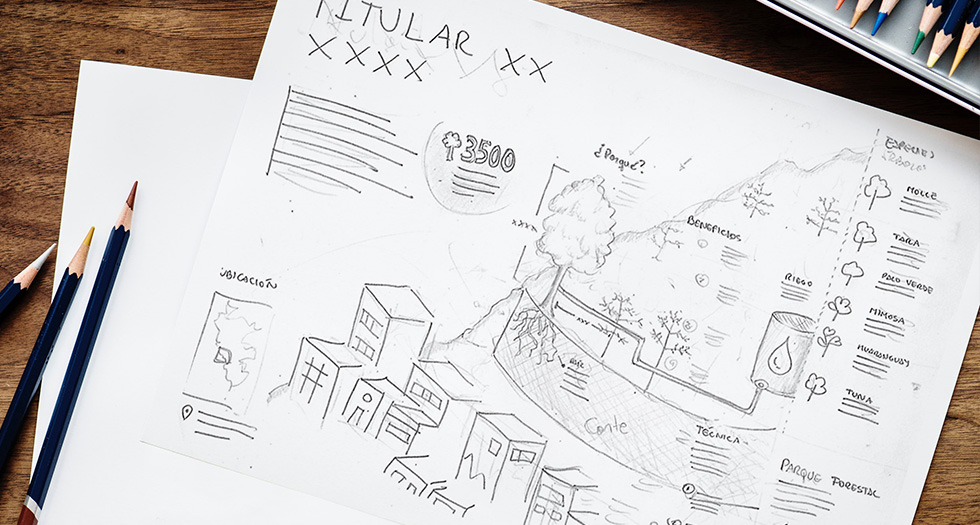 TITULAR XX
XXXX
3500
¿Porqué?
XXXX
BENEFICIOS
RIEGO
UBICACIÓN
XXX
Corte
TÉCNICA
ESPECIES
ÁRBOLES
MOLLE
TARA
PALO VERDE
MIMOSA
HUARANGUAY
TUNA
PARQUE FORESTAL